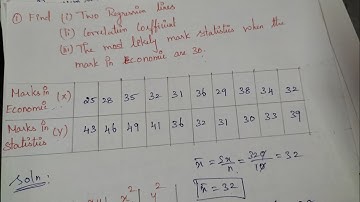 ① Find (i) Two Regression lines
(ii) Correlation Coefficient
(iii) The most likely mark statistics when the
mark in Economic are 30.
Marks in Economic (X) 25 28 35 32 31 36 29 38 34 32
Marks in Statistics (Y) 43 46 49 41 36 32 31 30 33 39
Soln:
x̄ = Σx/n = 320/10 = 32
x̄ = 32
x² y²